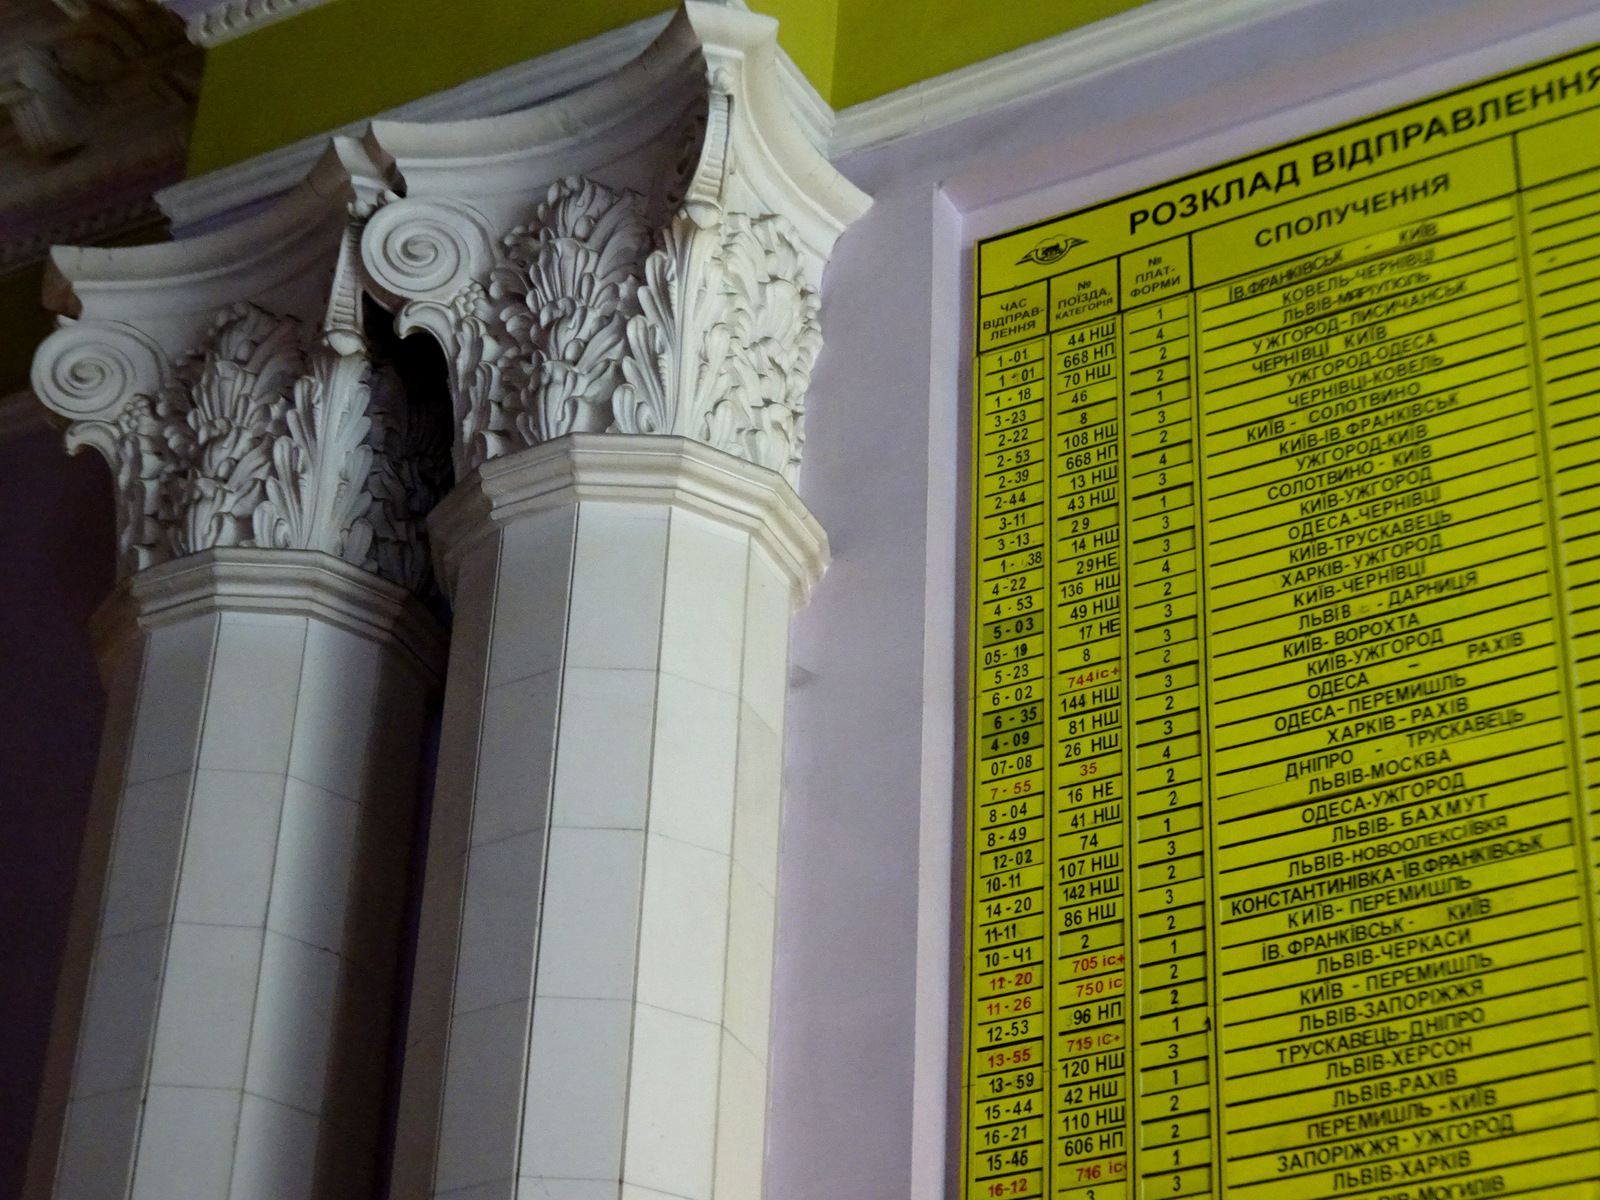 РОЗКЛАД ВІДПРАВЛЕННЯ
ЧАС ВІДПРАВ-ЛЕННЯ № ПОЇЗДА, КАТЕГОРІЯ № ПЛАТ-ФОРМИ СПОЛУЧЕННЯ
1-01 44 НШ 1 ІВ.ФРАНКІВСЬК - КИЇВ
1-01 668 НП 4 КОВЕЛЬ-ЧЕРНІВЦІ
1-18 70 НШ 2 ЛЬВІВ-МАРІУПОЛЬ
3-23 46 2 УЖГОРОД-ЛИСИЧАНСЬК
2-22 8 1 ЧЕРНІВЦІ КИЇВ
2-53 108 НШ 3 УЖГОРОД-ОДЕСА
2-39 668 НП 2 ЧЕРНІВЦІ-КОВЕЛЬ
2-44 13 НШ 4 КИЇВ - СОЛОТВИНО
3-11 43 НШ 3 КИЇВ-ІВ.ФРАНКІВСЬК
3-13 29 1 УЖГОРОД-КИЇВ
1-38 14 НШ 3 СОЛОТВИНО - КИЇВ
4-22 29НЕ 3 КИЇВ-УЖГОРОД
4-53 136 НШ 4 ОДЕСА-ЧЕРНІВЦІ
5-03 49 НШ 2 КИЇВ-ТРУСКАВЕЦЬ
05-19 17 НЕ 3 ХАРКІВ-УЖГОРОД
5-23 8 3 КИЇВ-ЧЕРНІВЦІ
6-02 744іс+ 2 ЛЬВІВ - ДАРНИЦЯ
6-35 144 НШ 3 КИЇВ- ВОРОХТА
4-09 81 НШ 2 КИЇВ-УЖГОРОД
07-08 26 НШ 3 ОДЕСА - РАХІВ
7-55 35 4 ОДЕСА-ПЕРЕМИШЛЬ
8-04 16 НЕ 2 ХАРКІВ-РАХІВ
8-49 41 НШ 2 ДНІПРО - ТРУСКАВЕЦЬ
12-02 74 1 ЛЬВІВ-МОСКВА
10-11 107 НШ 3 ОДЕСА-УЖГОРОД
14-20 142 НШ 2 ЛЬВІВ- БАХМУТ
11-11 86 НШ 3 ЛЬВІВ-НОВООЛЕКСІЇВКА
10-Ч1 2 2 КОНСТАНТИНІВКА-ІВ.ФРАНКІВСЬК
11-20 705 іс+ 1 КИЇВ- ПЕРЕМИШЛЬ
11-26 750 іс 2 ІВ.ФРАНКІВСЬК - КИЇВ
12-53 96 НП 2 ЛЬВІВ-ЧЕРКАСИ
13-55 715 ІС+ 1 КИЇВ - ПЕРЕМИШЛЬ
13-59 120 НШ 3 ЛЬВІВ-ЗАПОРІЖЖЯ
15-44 42 НШ 1 ТРУСКАВЕЦЬ-ДНІПРО
16-21 110 НШ 2 ЛЬВІВ-ХЕРСОН
15-46 606 НП 2 ЛЬВІВ-РАХІВ
16-12 716 іс 1 ПЕРЕМИШЛЬ - КИЇВ
3 3 ЗАПОРІЖЖЯ- УЖГОРОД
ЛЬВІВ-ХАРКІВ
МОГИЛІВ